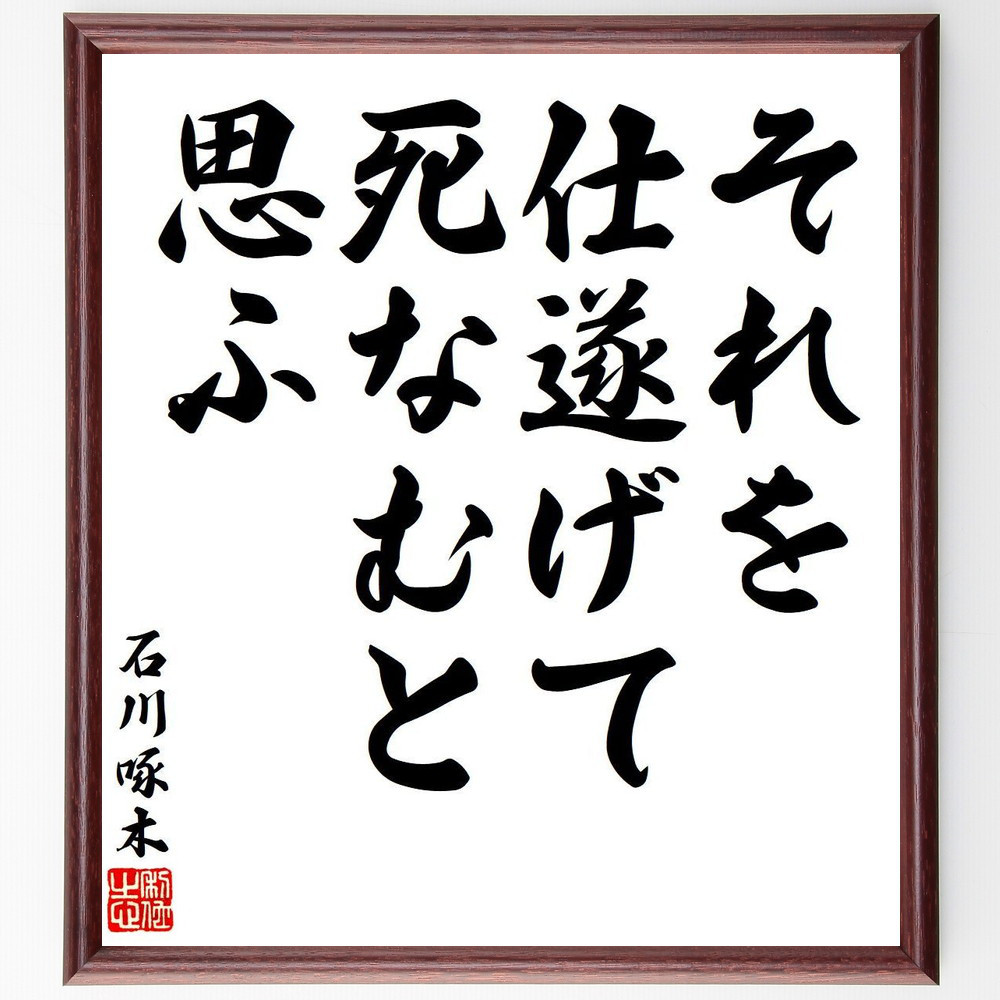 それを
仕遂げて
死なむと
思ふ
石川啄木